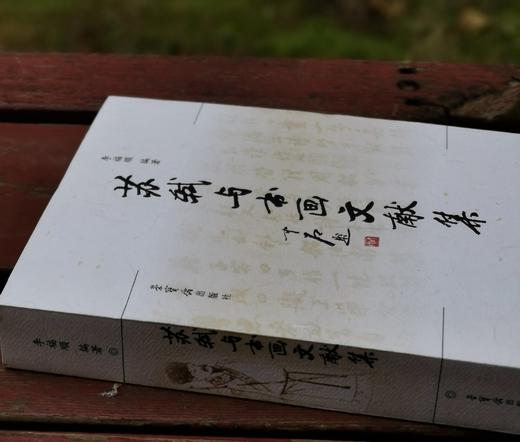 李福顺 编著
苏轼与书画文献集
荣宝斋出版社
苏轼与书画文献集
李福顺 编著
荣宝斋出版